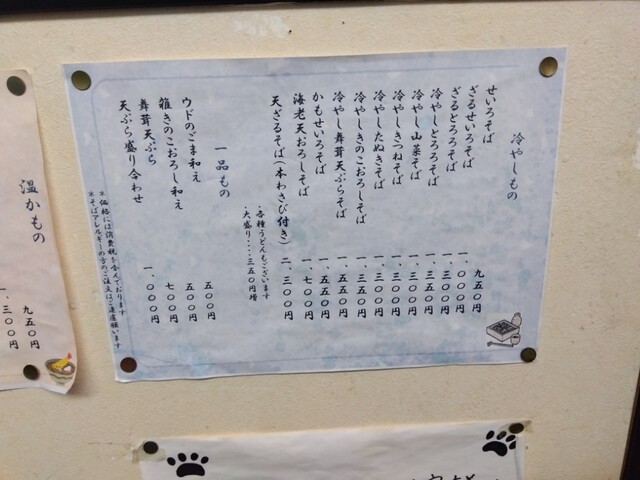 冷やしもの
せいろそば 九五〇円
ざるせいろそば 一、〇〇〇円
ざるとろろそば 一、三〇〇円
冷やしとろろそば 一、三五〇円
冷やし山菜そば 一、三〇〇円
冷やしきつねそば 一、三〇〇円
冷やしたぬきそば 一、三〇〇円
冷やしきのこおろしそば 一、三五〇円
冷やし舞茸天ぷらそば 一、五五〇円
かもせいろそば 一、五五〇円
海老天おろしそば 一、七〇〇円
天ざるそば(本わさび付き) 二、三〇〇円
・各種うどんもございます
・大盛り・・・・三五〇円増
一品もの
ウドのごま和え 五〇〇円
雑きのこおろし和え 五〇〇円
舞茸天ぷら 七〇〇円
天ぷら盛り合わせ 一、〇〇〇円
*価格には消費税を含んでおります
*そばアレルギーの方のご注文はご遠慮願います
温かもの
九五〇円
一、三〇〇円